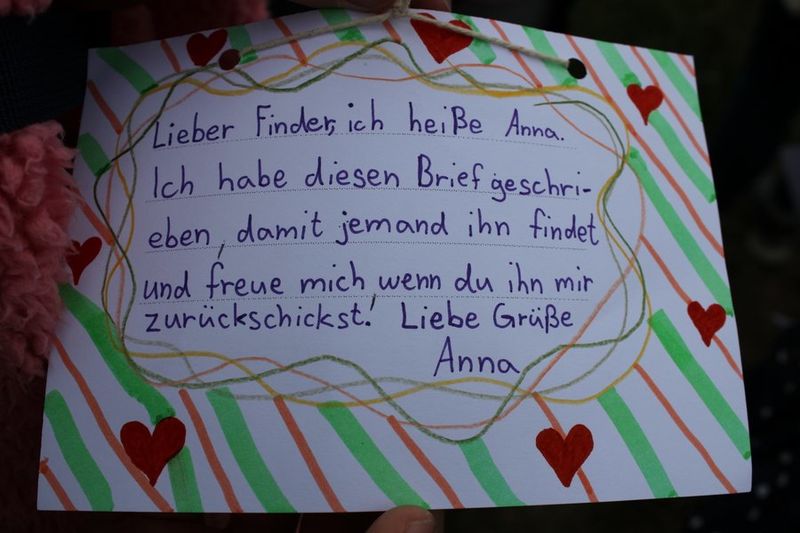 Lieber Finder, ich heiße Anna.
Ich habe diesen Brief geschri-
eben, damit jemand ihn findet
und freue mich, wenn du ihn mir
zurückschickst! Liebe Grüße
Anna